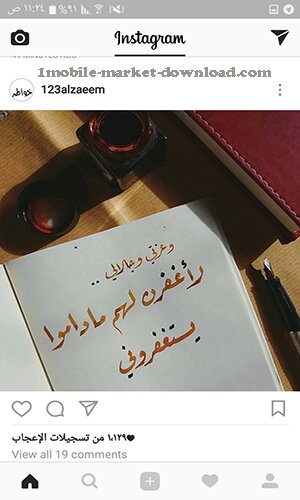 ١١:٢٤ ص
٩١%
Instagram
1mobile-market-download.com
خواطر
123alzaeem
وعزتي وجلالي ..
لأغفرن لهم ماداموا
يستغفروني
١٠١٢٩ من تسجيلات الإعجاب
View all 19 comments